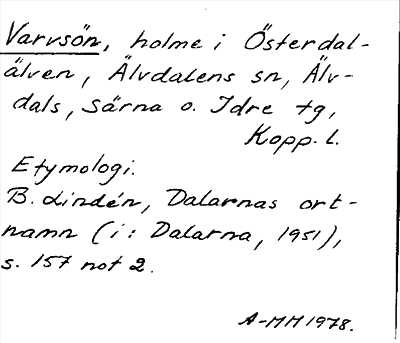 Varvsön, holme i Österdal-
älven, Älvdalens sn, Älv-
dals, Särna o. Idre tg,
Kopp. l.
Etymologi.
B. Lindén, Dalarnas ort-
namn (i: Dalarna, 1951),
s. 157 not 2.
A-MM 1978.